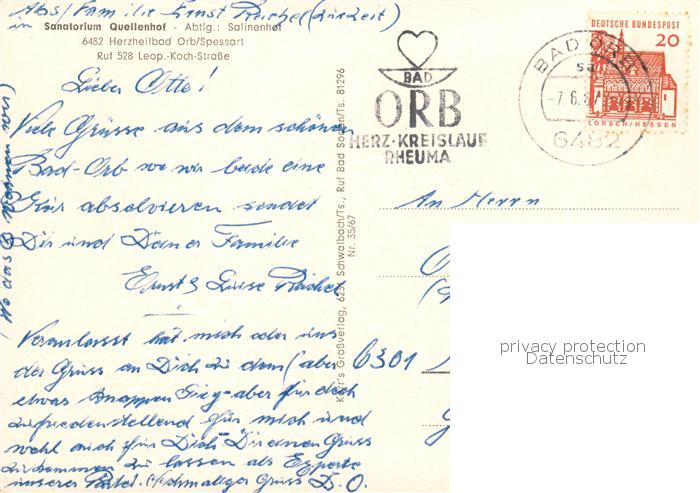 Abs/Familie Ernst (zurzeit)
in Sanatorium Quellenhof - Abtlg.: Salinenhof
6482 Herzheilbad Orb/Spessart
Ruf 528 Leop.-Koch-Straße
Lieber Otto!
Viele Grüsse aus dem schönen
Bad-Orb wo wir beide eine
Kur absolvieren sendet
Dir und Deiner Familie
Ernst & Luise
Veranlasst hat mich oder uns
der Gruss an Dich zu dem (aber
etwas knappen Sieg-aber für doch
zufriedenstellend für mich und
wohl auch für Dich- Dir einen Gruss
zukommen zu lassen als Experte
unserer Partei. Nochmaliger Gruss D. O.
(Wo das ⊗ wohnen wir)
Kerr's Großverlag, 623 Schwalbach/Ts., Ruf Bad Soden/Ts. 81296
Nr. 35/67
BAD
ORB
HERZ·KREISLAUF
RHEUMA
BAD ORB
sa
-7.6.
6482
DEUTSCHE BUNDESPOST
20
LORSCH/HESSEN
An Herrn
6301
privacy protection
Datenschutz